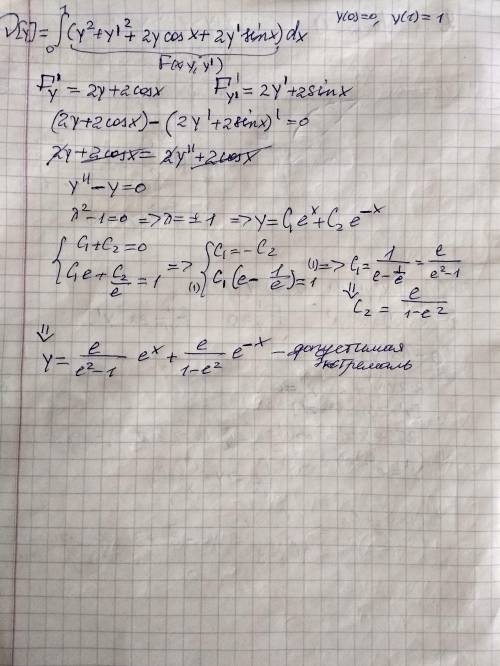 y(0)=0, y(1)=1
V[y]=∫₀¹(y²+y'²+2ycosx+2y'sinx)dx
F(x,y,y')
F'y=2y+2cosx F'y'=2y'+2sinx
(2y+2cosx)-(2y'+2sinx)'=0
2y+2cosx=2y''+2cosx
y''-y=0
λ²-1=0 => λ=±1 => y=C₁eˣ+C₂e⁻ˣ
{C₁+C₂=0 {C₁=-C₂
C₁e+C₂/e=1 => (1) C₁(e-1/e)=1 (1)=> C₁=1/(e-1/e)=e/(e²-1)
⇓ C₂=e/(1-e²)
⇓
y=e/(e²-1) eˣ+e/(1-e²) e⁻ˣ - допустимая
экстремаль